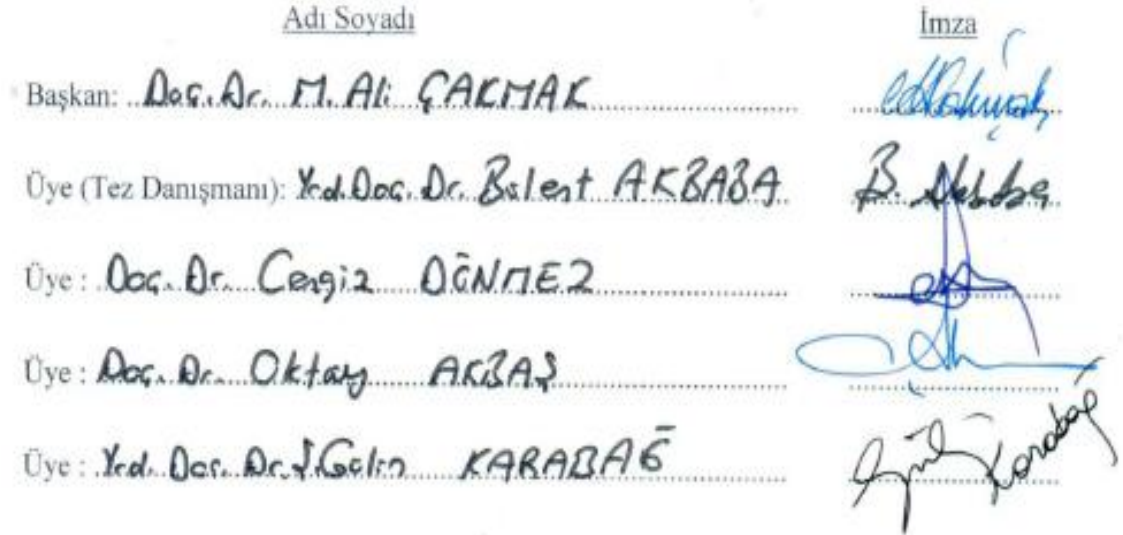 Adı Soyadı İmza
Başkan: Doç. Dr. M. Ali ÇAKMAK
Üye (Tez Danışmanı): Yrd. Doç. Dr. Bülent AKBABA B. Akbaba
Üye : Doç. Dr. Cengiz DÖNMEZ
Üye : Doç. Dr. Oktay AKBAŞ
Üye : Yrd. Doç. Dr. Ş. Gülin KARABAĞ Karabağ